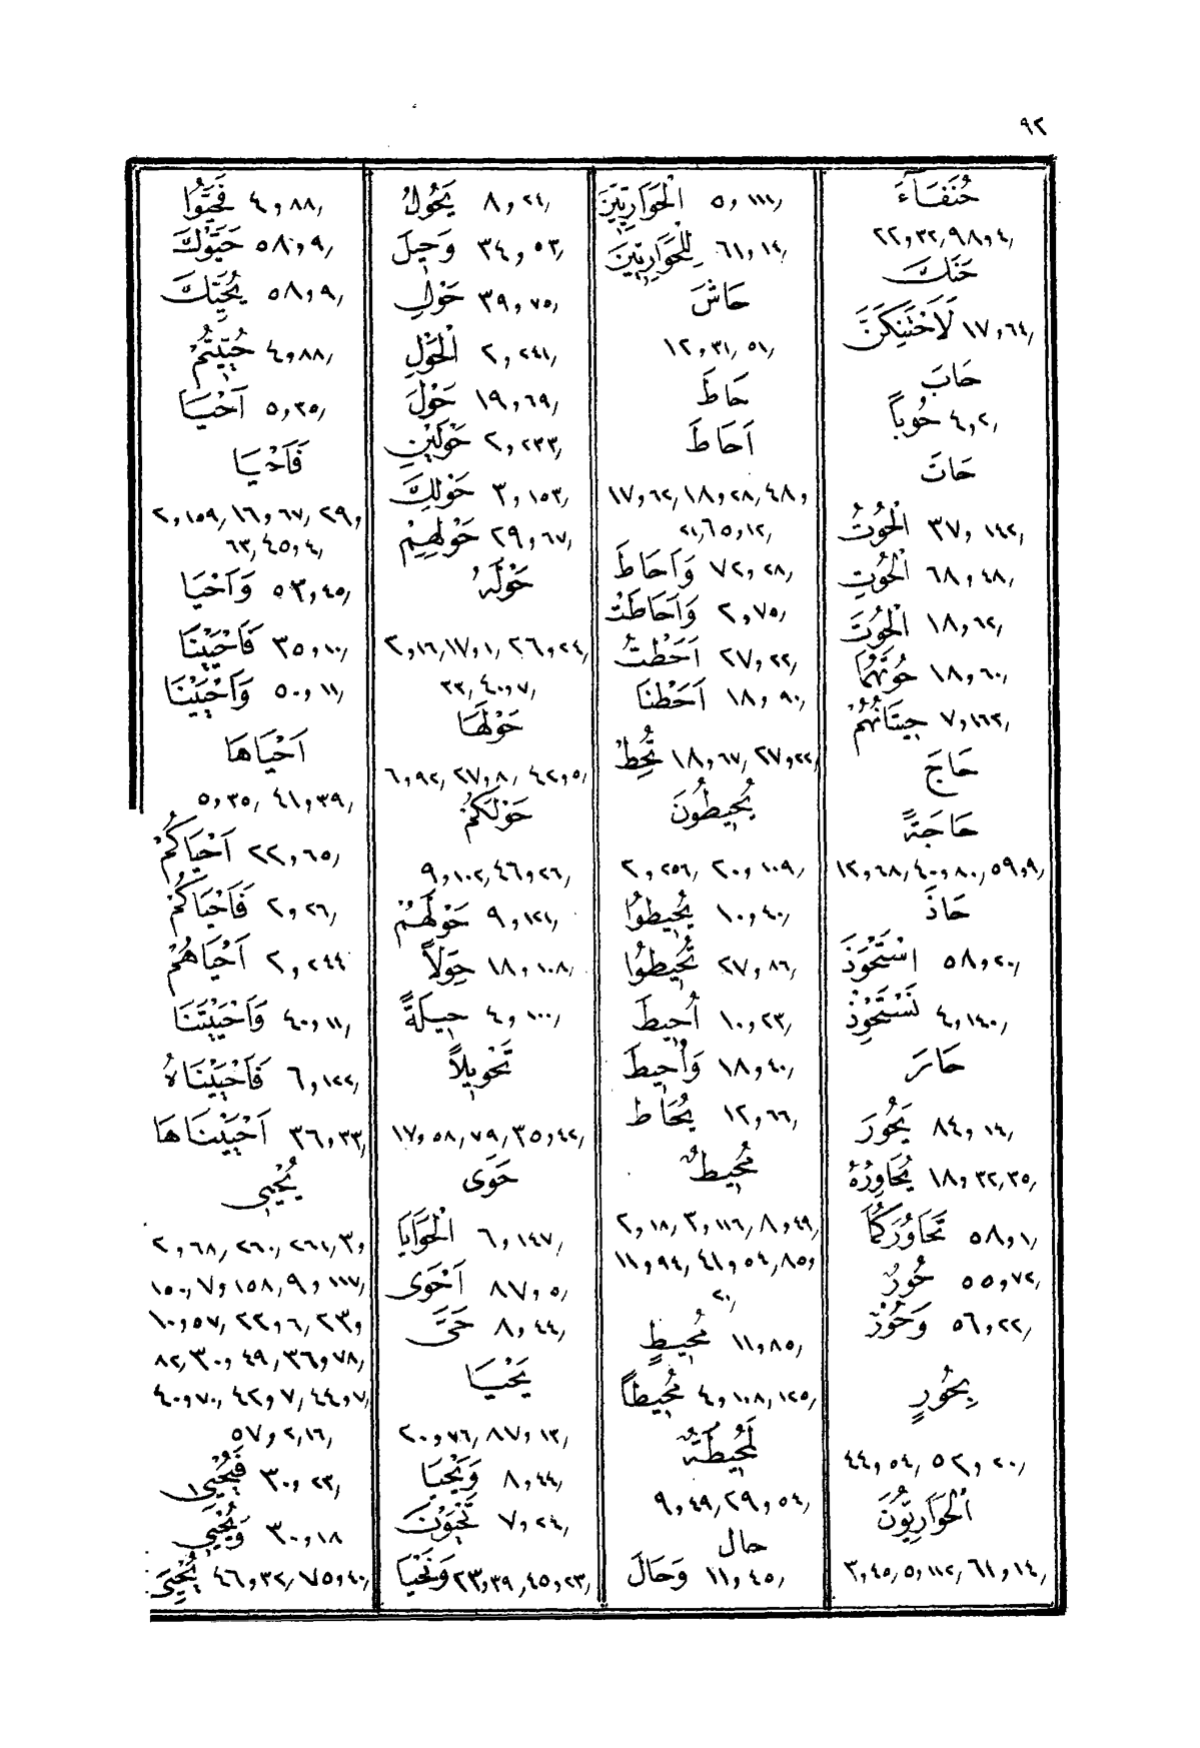 ٩٢
حُنَفَآءَ
٢٢,٣٢٫ ٩٨,٤٫
حَنَكَ
لَاَحْتَنِكَنَّ ١٧,٦٤٫
حَابَ
حُوبًا ٤,٢٫
حَاتَ
الْحُوتُ ٣٧,١٤٢٫
الْحُوتِ ٦٨,٤٨٫
الْحُوتَ ١٨,٦٢٫
حُوتَهُمَا ١٨,٦٠٫
حِيتَانُهُمْ ٧,١٦٣٫
حَاجَ
حَاجَةً
١٢,٦٨٫ ٤٠,٨٠٫ ٥٩,٩٫
حَاذَ
اسْتَحْوَذَ ٥٨,٢٠٫
نَسْتَحْوِذْ ٤,١٤٠٫
حَارَ
يَحُورَ ٨٤,١٤٫
يُحَاوِرُهُ ١٨,٣٢٫٣٥٫
تَحَاوُرَكُمَا ٥٨,١٫
حُورٌ ٥٥,٧٢٫
وَحُورٌ ٥٦,٢٢٫
بِحُورٍ
٤٤,٥٤٫ ٥٢,٢٠٫
الْحَوَارِيُّونَ
٣,٤٥٫ ٥,١١٢٫ ٦١,١٤٫
الْحَوَارِيِّينَ ٥,١١١٫
لِلْحَوَارِيِّينَ ٦١,١٤٫
حَاشَ
١٢,٣١٫ ٥١٫
حَاطَ
اَحَاطَ
١٧,٦٢٫ ١٨,٢٨٫ ٤٨,
٢١٫ ٦٥,١٢٫
وَاَحَاطَ ٧٢,٢٨٫
وَاَحَاطَتْ ٢,٧٥٫
اَحَطْتُ ٢٧,٢٢٫
اَحَطْنَا ١٨,٩٠٫
تُحِطْ ١٨,٦٧٫ ٢٧,٢٢٫
يُحِيطُونَ
٢,٢٥٦٫ ٢٠,١٠٩٫
يُحِيطُوا ١٠,٤٠٫
تُحِيطُوا ٢٧,٨٦٫
اُحِيطَ ١٠,٢٣٫
وَاُحِيطَ ١٨,٤٠٫
يُحَاطَ ١٢,٦٦٫
مُحِيطٌ
٢,١٨٫ ٣,١١٦٫ ٨,٤٩٫
١١,٩٤٫ ٤١,٥٤٫ ٨٥,
٢٠٫
مُحِيطٍ ١١,٨٥٫
مُحِيطًا ٤,١٠٨٫١٢٥٫
لَمُحِيطَةٌ
٩,٤٩٫ ٢٩,٥٤٫
حال
وَحَالَ ١١,٤٥٫
يَحُولُ ٨,٢٤٫
وَحِيلَ ٣٤,٥٣٫
حَوْلِ ٣٩,٧٥٫
الْحَوْلِ ٢,٢٤١٫
حَوْلَ ١٩,٦٩٫
حَوْلَيْنِ ٢,٢٣٣٫
حَوْلِكَ ٣,١٥٣٫
حَوْلِهِمْ ٢٩,٦٧٫
حَوْلَهُ
٢,١٦٫ ١٧,١٫ ٢٦,٢٤٫
٣٣٫ ٤٠,٧٫
حَوْلَهَا
٦,٩٢٫ ٢٧,٨٫ ٤٢,٥٫
حَوْلَكُمْ
٩,١٠٢٫ ٤٦,٢٦٫
حَوْلَهُمْ ٩,١٢١٫
حِوَلًا ١٨,١٠٨٫
حِيلَةً ٤,١٠٠٫
تَحْوِيلًا
١٧,٥٨٫ ٧٩٫ ٣٥,٤٢٫
حَوَى
الْحَوَايَا ٦,١٤٧٫
اَحْوَى ٨٧,٥٫
حَىَّ ٨,٤٤٫
يَحْيَا
٢٠,٧٦٫ ٨٧,١٣٫
وَيَحْيَا ٨,٤٤٫
تَحْيَوْنَ ٧,٢٤٫
وَنَحْيَا ٢٣,٣٩٫ ٤٥,٢٣٫
فَحَيُّوا ٤,٨٨٫
حَيَّوْكَ ٥٨,٩٫
يُحَيِّكَ ٥٨,٩٫
حُيِّيتُمْ ٤,٨٨٫
اَحْيَا ٥,٣٥٫
فَاَحْيَا
٢,١٥٩٫ ١٦,٦٧٫ ٢٩,
٦٣٫ ٤٥,٤٫
وَاَحْيَا ٥٣,٤٥٫
فَاَحْيَيْنَا ٣٥,١٠٫
وَاَحْيَيْنَا ٥٠,١١٫
اَحْيَاهَا
٥,٣٥٫ ٤١,٣٩٫
اَحْيَاكُمْ ٢٢,٦٥٫
فَاَحْيَاكُمْ ٢,٢٦٫
اَحْيَاهُمْ ٢,٢٤٤
وَاَحْيَيْتَنَا ٤٠,١١٫
فَاَحْيَيْنَاهُ ٦,١٢٢٫
اَحْيَيْنَاهَا ٣٦,٣٣٫
يُحْيِى
٢,٦٨٫ ٢٦٠٫ ٢٦١٫ ٣,
١٥٠٫ ٧,١٥٨٫ ٩,١١٧٫
١٠,٥٧٫ ٢٢,٦٫ ٢٣,
٨٢٫ ٣٠,٤٩٫ ٣٦,٧٨٫
٤٠,٧٠٫ ٤٢,٧٫ ٤٤,٧٫
٥٧,٢٫١٦٫
فَيُحْيِى ٣٠,٢٣٫
وَيُحْيِى ٣٠,١٨
يُحْيِىَ ٤٦,٣٢٫ ٧٥,٤٠٫